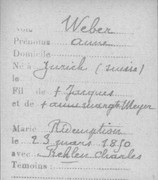 Nom Weber
Prénoms anne
Domicile
Né à Zurich (suisse)
le
Fil de + Jacques
et + anne Meyer
Marié
le 23 mars 1810
avec Charles
Témoins :